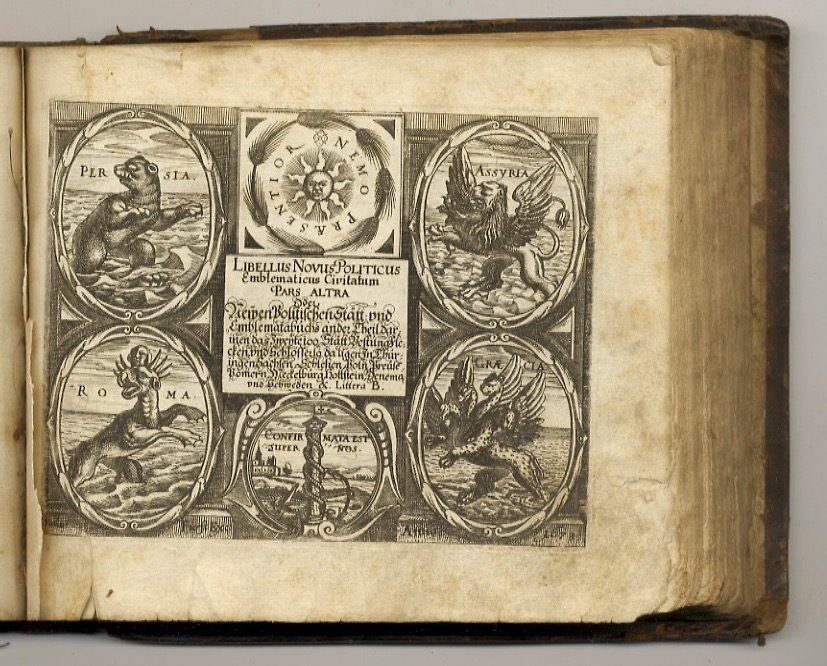 PERSIA.
NEMO PRÆSENTIOR
ASSYRIA
LIBELLUS NOVUS POLITICUS
Emblematicus Civitatum
PARS ALTRA
Oder
Newen Politischen Stätt und
Emblematabuchs ander Theil dar
innen das zweyte 100 Stätt Vestung Fle
cken und Schlösser so da ligen in Thür
ingen Sachsen Schlesien Poln Preuse
Pomern Meckelburg Hollstein Denema
und Schweden &. Littera B.
ROMA.
GRÆCIA
CONFIRMATA EST
SUPER NOS.